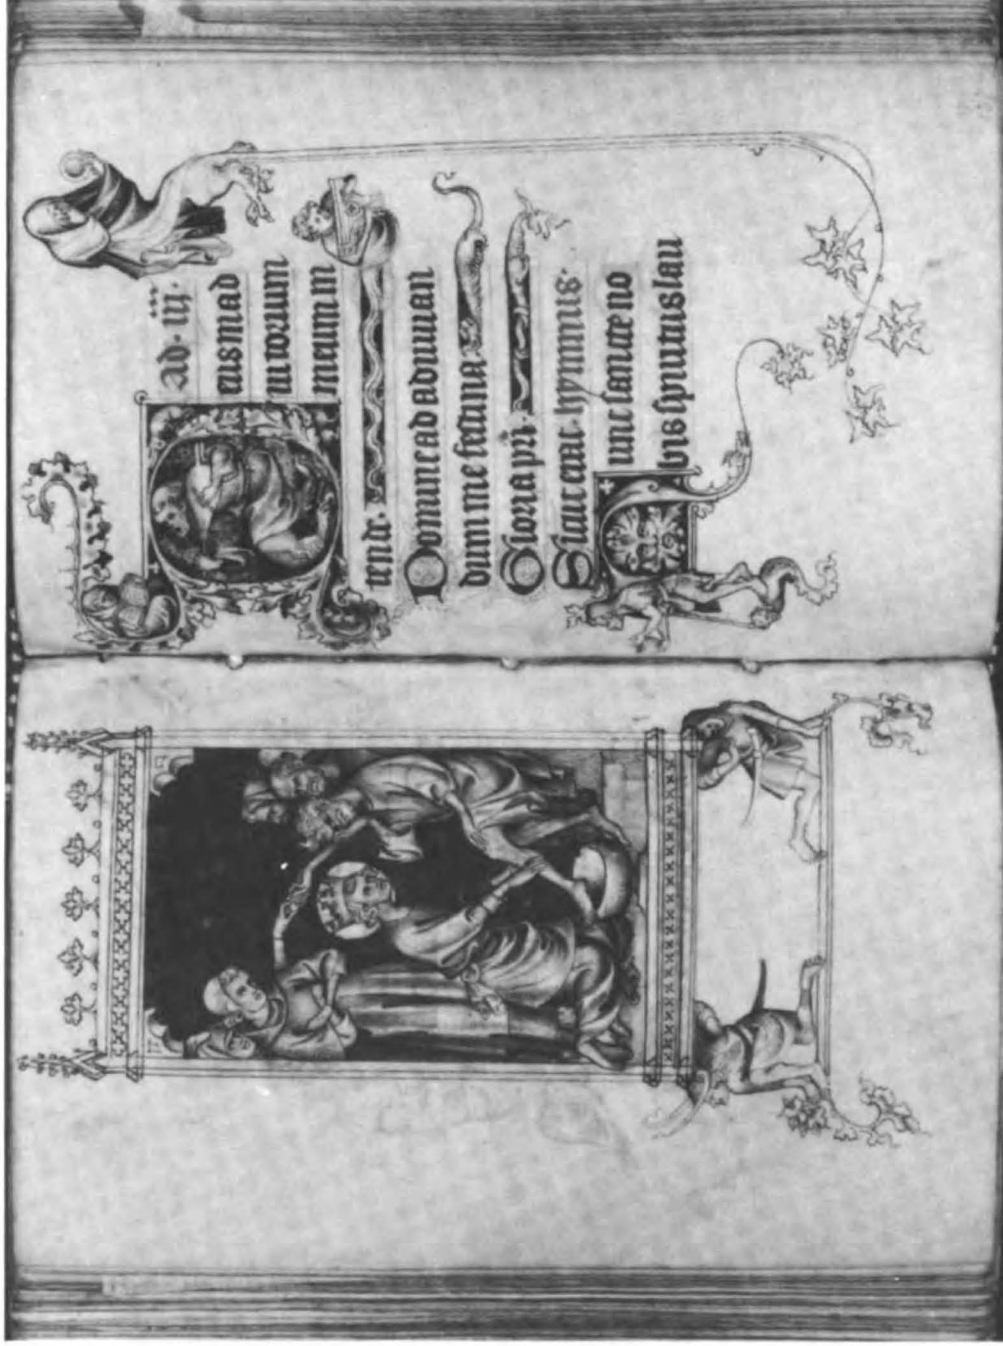 ad. iij.
Deus in ad
iutorium
meum in
tende.
Domine ad adiuuan
dum me festina.
Gloria pri.
Sicut erat. hymnus.
Nunc sancte no
bis spiritus